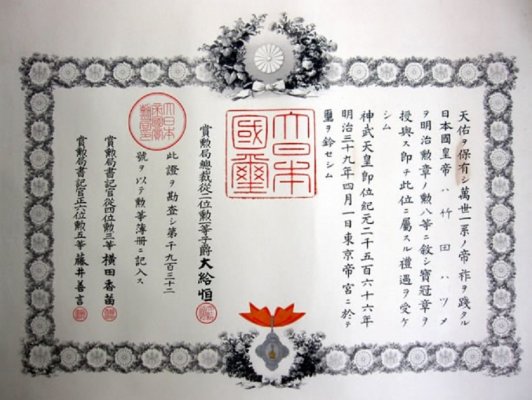 天佑ヲ保有シ萬世一系ノ帝祚ヲ踐タル
日本國皇帝ハ竹田ハツメ
ヲ明治勲章ノ勲八等ニ敍シ寶冠章ヲ
授與ス即チ此位ニ屬スル禮遇ヲ受ケ
シム
神武天皇即位紀元二千五百六十六年
明治三十九年四月一日東京帝宮ニ於テ
璽ヲ鈐セシム
大日本
國璽
賞勲局總裁從二位勲一等子爵大給恒
此證ヲ勘査シ第千九百三十二
號ヲ以テ勲等簿冊ニ記入ス
賞勲局書記官從四位勲三等横田香苗
賞勲局書記官正六位勲五等藤井善言